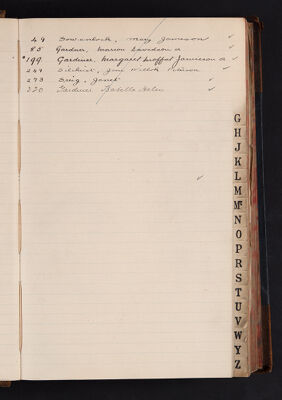 49 Gowenlock, Mary Jameson ✓
85 Gardner, Marion Davidson a ✓
*199 Gardiner, Margaret Moffat Jamieson a ✓
264 Gilchrist, Jane
273 Greig, Janet ✓
320 Gardner Isabella Helen ✓
G
H
J
K
L
M
Mc
N
O
P
R
S
T
U
V
W
Y
Z